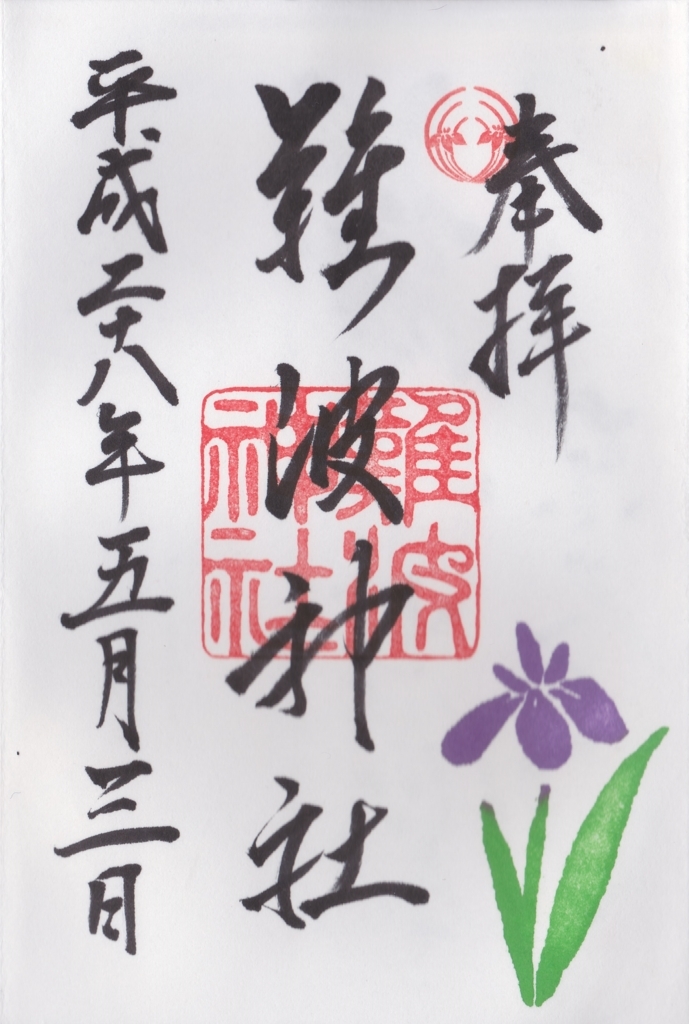 奉拝
難波神社
難波
神社
平成二十八年五月三日